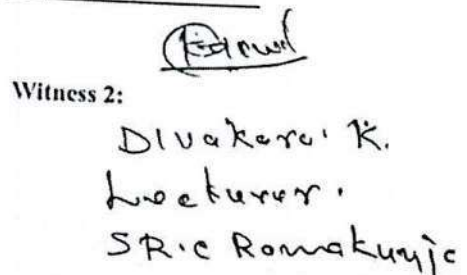 Witness 2:
Divakara. K.
Lecturer.
SR.C Ramakunje